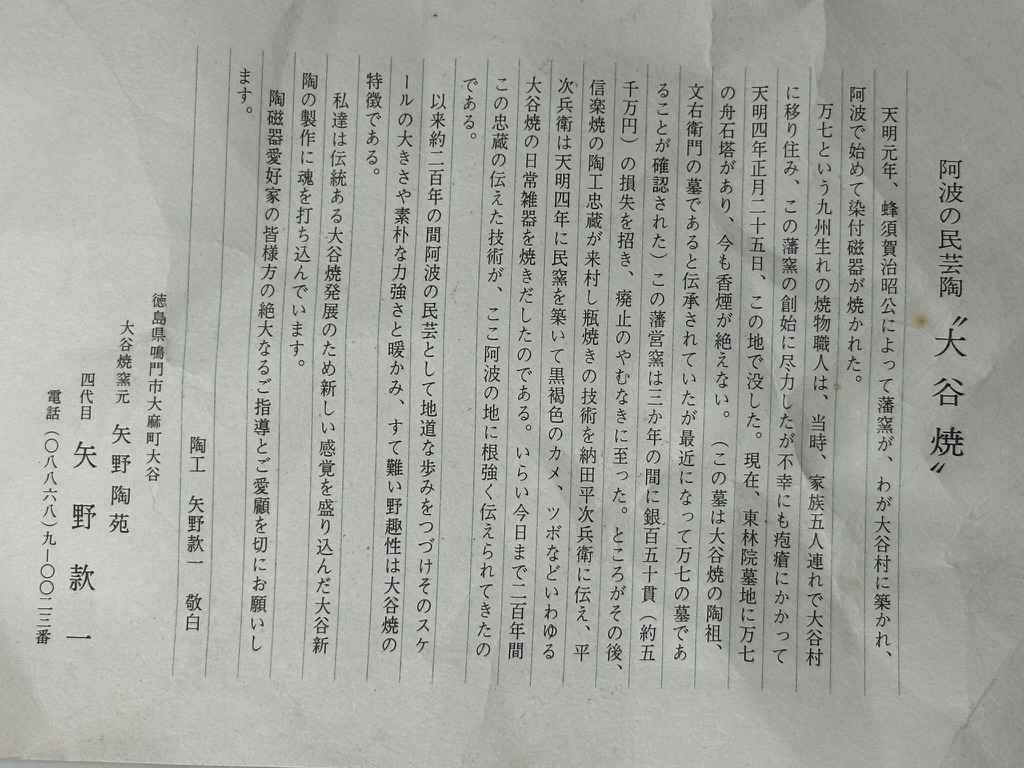 阿波の民芸陶〝大谷焼〟
天明元年、蜂須賀治昭公によって藩窯が、わが大谷村に築かれ、
阿波で始めて染付磁器が焼かれた。
万七という九州生れの焼物職人は、当時、家族五人連れで大谷村
に移り住み、この藩窯の創始に尽力したが不幸にも疱瘡にかかって
天明四年正月二十五日、この地で没した。現在、東林院墓地に万七
の舟石塔があり、今も香煙が絶えない。（この墓は大谷焼の陶祖、
文右衛門の墓であると伝承されていたが最近になって万七の墓であ
ることが確認された）この藩営窯は三か年の間に銀百五十貫（約五
千万円）の損失を招き、廃止のやむなきに至った。ところがその後、
信楽焼の陶工忠蔵が来村し瓶焼きの技術を納田平次兵衛に伝え、平
次兵衛は天明四年に民窯を築いて黒褐色のカメ、ツボなどいわゆる
大谷焼の日常雑器を焼きだしたのである。いらい今日まで二百年間
この忠蔵の伝えた技術が、ここ阿波の地に根強く伝えられてきたの
である。
以来約二百年の間阿波の民芸として地道な歩みをつづけそのスケ
ールの大きさや素朴な力強さと暖かみ、すて難い野趣性は大谷焼の
特徴である。
私達は伝統ある大谷焼発展のため新しい感覚を盛り込んだ大谷新
陶の製作に魂を打ち込んでいます。
陶磁器愛好家の皆様方の絶大なるご指導とご愛顧を切にお願いし
ます。
陶工　矢野款一　敬白
徳島県鳴門市大麻町大谷
大谷焼窯元　矢野陶苑
四代目　矢野款一
電話（〇八八六八）九ー〇〇二三番